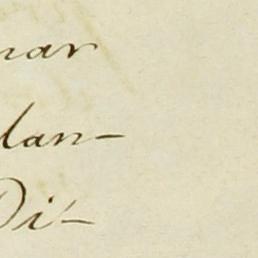 nar
lan-
Di-